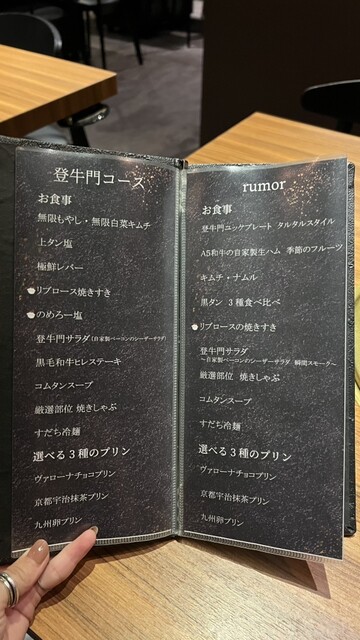 登牛門コース
お食事
無限もやし・無限白菜キムチ
上タン塩
極鮮レバー
リブロース焼きすき
のめろー塩
登牛門サラダ(自家製ベーコンのシーザーサラダ)
黒毛和牛ヒレステーキ
コムタンスープ
厳選部位 焼きしゃぶ
すだち冷麺
選べる3種のプリン
ヴァローナチョコプリン
京都宇治抹茶プリン
九州卵プリン
rumor
お食事
登牛門ユッケプレート タルタルスタイル
A5和牛の自家製生ハム 季節のフルーツ
キムチ・ナムル
黒タン 3種食べ比べ
リブロースの焼すき
登牛門サラダ
~自家製ベーコンのシーザーサラダ 瞬間スモーク~
厳選部位 焼きしゃぶ
コムタンスープ
すだち冷麺
選べる3種のプリン
ヴァローナチョコプリン
京都宇治抹茶プリン
九州卵プリン